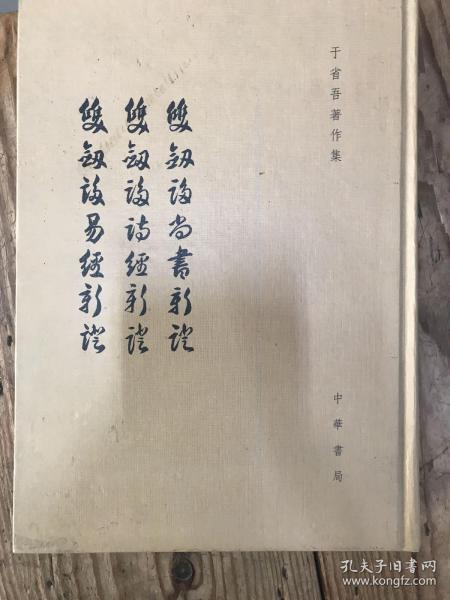 于省吾著作集
雙劍誃尚書新證
雙劍誃詩經新證
雙劍誃易經新證
中華書局
孔夫子旧书网
www.kongfz.com